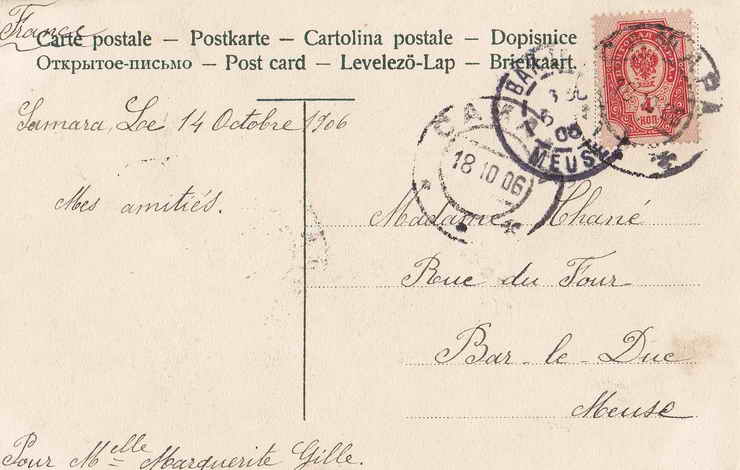 France
Carte postale — Postkarte — Cartolina postale — Dopisnice
Открытое-письмо — Post card — Levelező-Lap — Briefkaart.
Samara, Le 14 Octobre 1906
Mes amitiés.
18 10 06
BAR
MEUSE
4
КОП.
Madame Chané
Rue du Four
Bar-le-Duc
Meuse
Pour Melle Marguerite Gille.